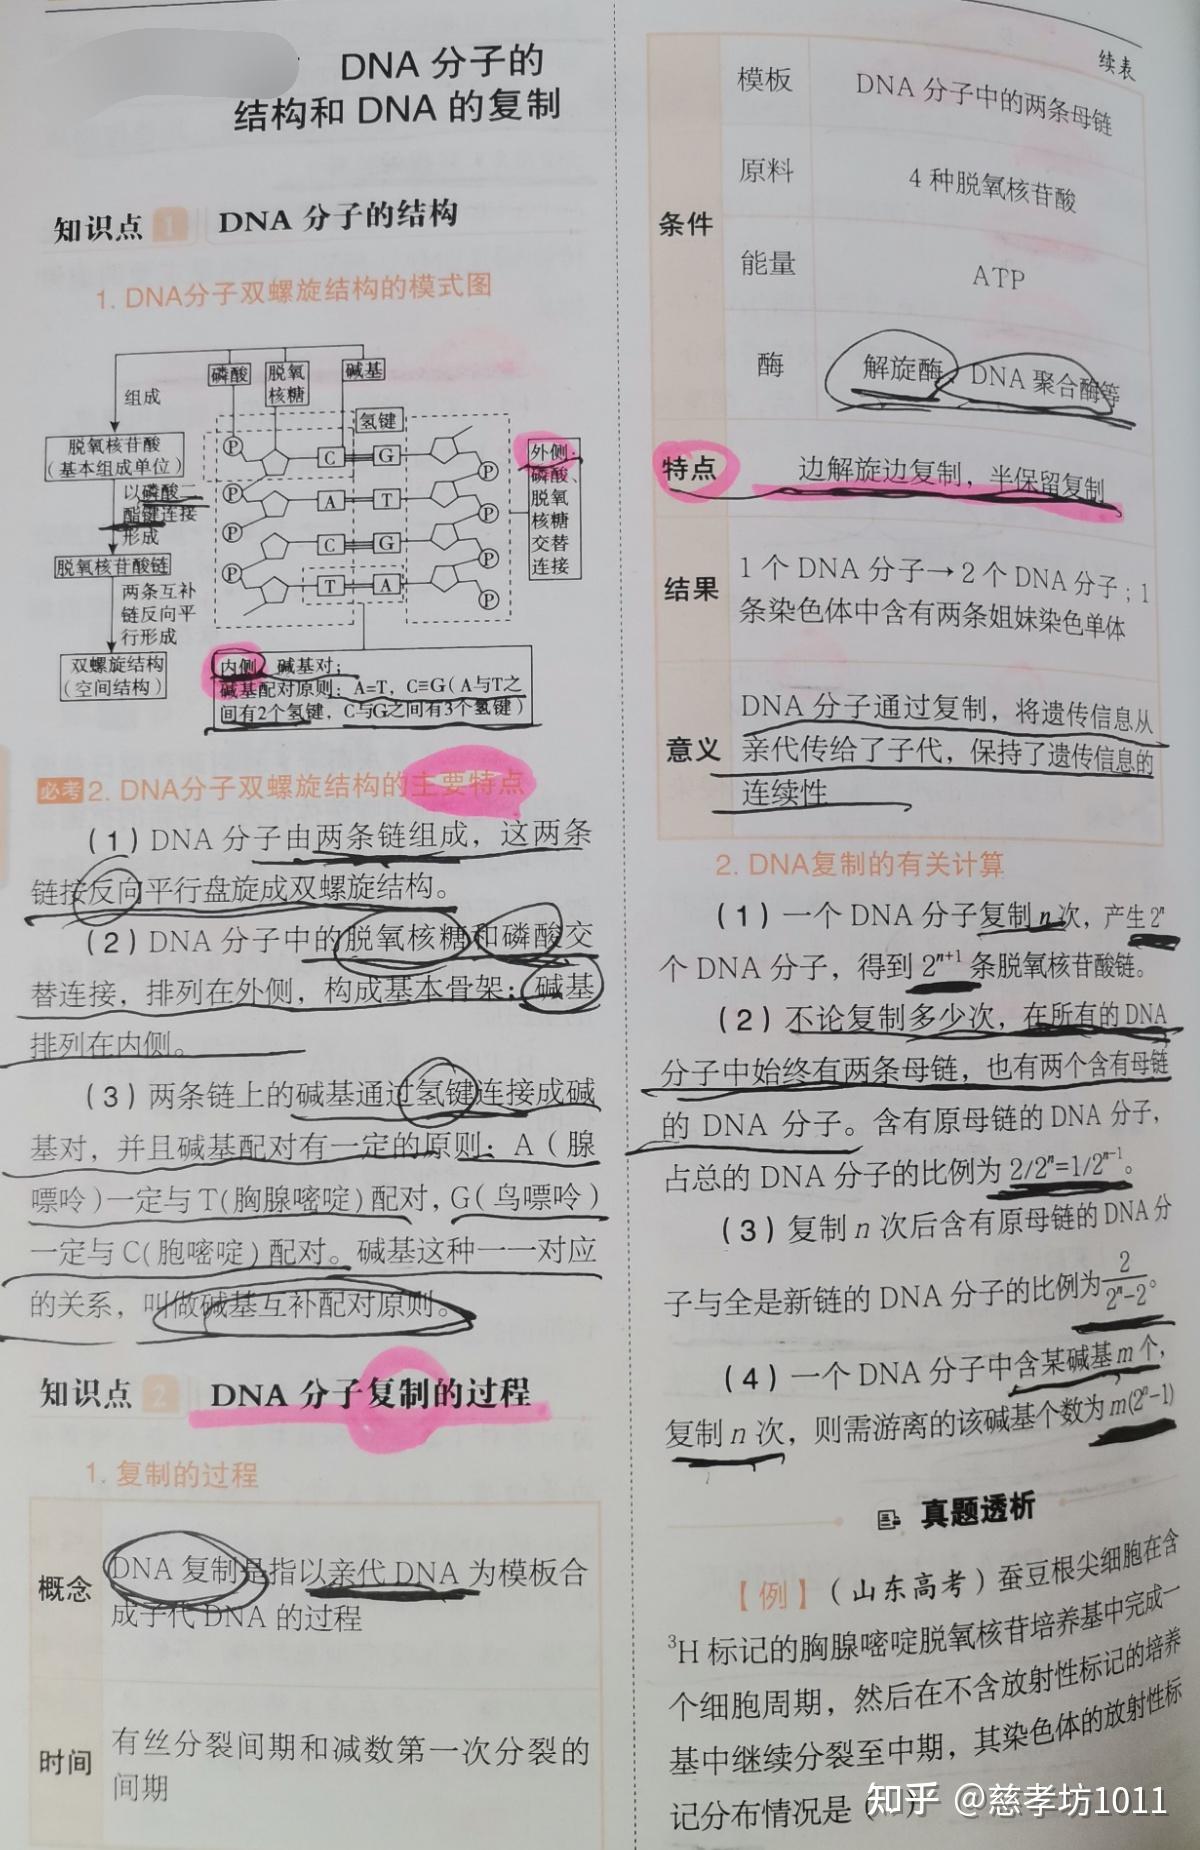 DNA 分子的
结构和 DNA 的复制
知识点 1 DNA 分子的结构
1. DNA分子双螺旋结构的模式图
磷酸
脱氧
核糖
碱基
组成
氢键
脱氧核苷酸
(基本组成单位)
以磷酸二
酯键连接
形成
脱氧核苷酸链
两条互补
链反向平
行形成
双螺旋结构
(空间结构)
P C G P
P A T P
P C G P
P T A P
外侧:
磷酸、
脱氧
核糖
交替
连接
内侧:碱基对;
碱基配对原则:A=T,C≡G(A与T之
间有2个氢键,C与G之间有3个氢键)
必考 2. DNA分子双螺旋结构的主要特点
(1)DNA 分子由两条链组成,这两条
链按反向平行盘旋成双螺旋结构。
(2)DNA 分子中的脱氧核糖和磷酸交
替连接,排列在外侧,构成基本骨架;碱基
排列在内侧。
(3)两条链上的碱基通过氢键连接成碱
基对,并且碱基配对有一定的原则:A(腺
嘌呤)一定与 T(胸腺嘧啶)配对,G(鸟嘌呤)
一定与 C(胞嘧啶)配对。碱基这种一一对应
的关系,叫做碱基互补配对原则。
知识点 2 DNA 分子复制的过程
1. 复制的过程
概念
DNA 复制是指以亲代 DNA 为模板合
成子代 DNA 的过程
时间
有丝分裂间期和减数第一次分裂的
间期
续表
条件
模板 DNA 分子中的两条母链
原料 4 种脱氧核苷酸
能量 ATP
酶 解旋酶、DNA 聚合酶等
特点 边解旋边复制,半保留复制
结果
1 个 DNA 分子→2 个 DNA 分子;1
条染色体中含有两条姐妹染色单体
意义
DNA 分子通过复制,将遗传信息从
亲代传给了子代,保持了遗传信息的
连续性
2. DNA复制的有关计算
(1)一个 DNA 分子复制 n 次,产生 2ⁿ
个 DNA 分子,得到 2ⁿ⁺¹ 条脱氧核苷酸链。
(2)不论复制多少次,在所有的 DNA
分子中始终有两条母链,也有两个含有母链
的 DNA 分子。含有原母链的 DNA 分子,
占总的 DNA 分子的比例为 2/2ⁿ=1/2ⁿ⁻¹。
(3)复制 n 次后含有原母链的 DNA 分
子与全是新链的 DNA 分子的比例为 2/(2ⁿ-2)。
(4)一个 DNA 分子中含某碱基 m 个,
复制 n 次,则需游离的该碱基个数为 m(2ⁿ-1)
真题透析
【例】(山东高考)蚕豆根尖细胞在含
³H 标记的胸腺嘧啶脱氧核苷培养基中完成一
个细胞周期,然后在不含放射性标记的培养
基中继续分裂至中期,其染色体的放射性标
记分布情况是(
知乎 @慈孝坊1011